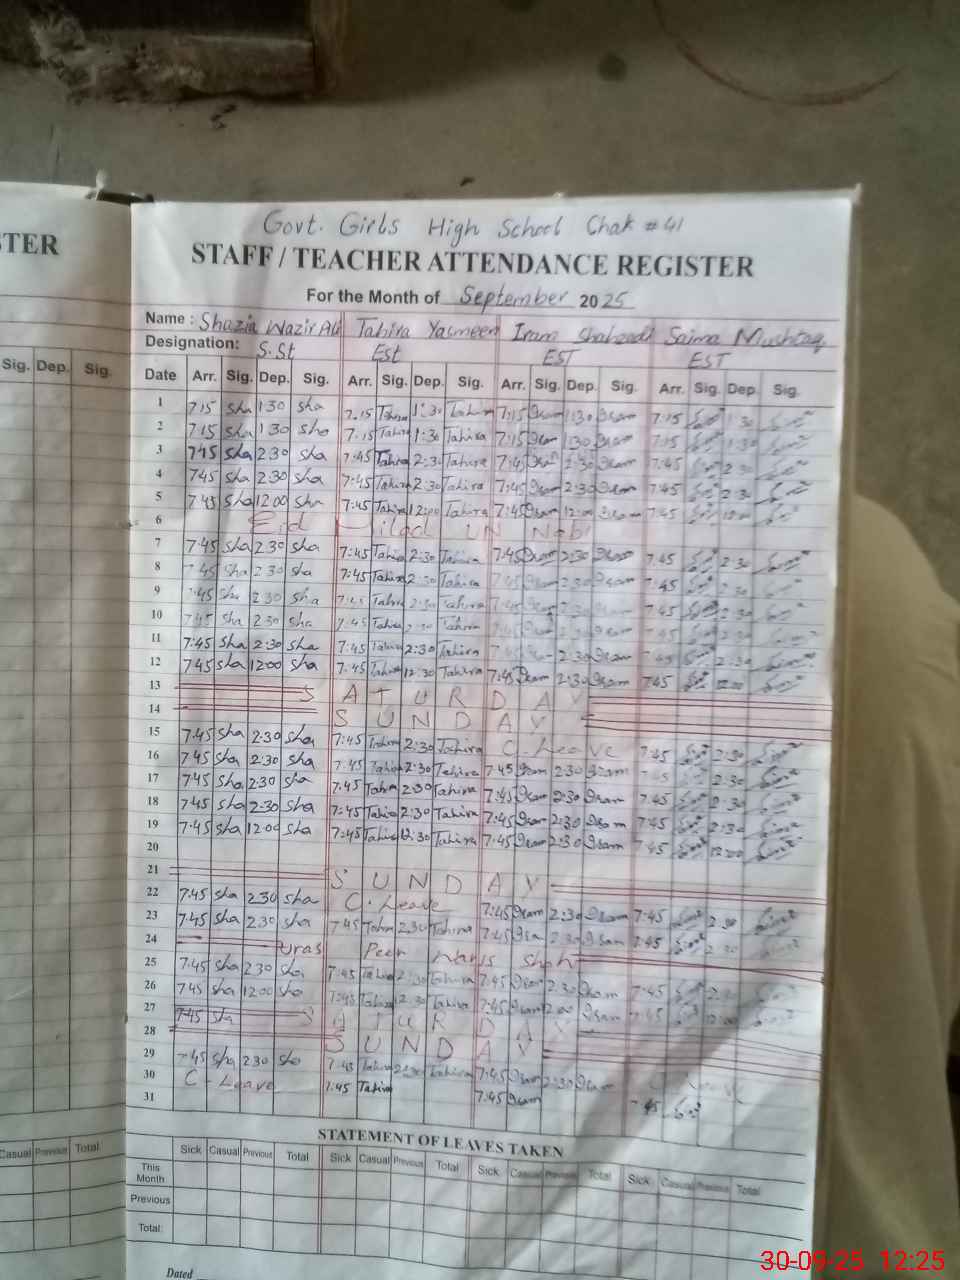 Govt. Girls High School Chak #41
STER
STAFF / TEACHER ATTENDANCE REGISTER
For the Month of September 2025
Name: Shazia Wazir Ali Tahira Yasmeen Iram Shahzadi Saima Mushtaq
Designation: S.St Est EST EST
Sig. Dep. Sig.
Date Arr. Sig. Dep. Sig. Arr. Sig. Dep. Sig. Arr. Sig. Dep. Sig. Arr. Sig. Dep. Sig.
1 7:15 sha 1:30 sha 7:15 Tahira 1:30 Tahira 7:15 Iram 1:30 Iram 7:15 1:30
2 7:15 sha 1:30 sha 7:15 Tahira 1:30 Tahira 7:15 Iram 1:30 Iram 7:15 1:30
3 7:45 sha 2:30 sha 7:45 Tahira 2:30 Tahira 7:45 Iram 2:30 Iram 7:45 2:30
4 7:45 sha 2:30 sha 7:45 Tahira 2:30 Tahira 7:45 Iram 2:30 Iram 7:45 2:30
5 7:45 sha 12:00 sha 7:45 Tahira 12:00 Tahira 7:45 Iram 12:00 Iram 7:45 12:00
6 Eid Milad UN Nabi
7 7:45 sha 2:30 sha 7:45 Tahira 2:30 Tahira 7:45 Iram 2:30 Iram 7:45 2:30
8 7:45 sha 2:30 sha 7:45 Tahira 2:30 Tahira 7:45 Iram 2:30 Iram 7:45 2:30
9 7:45 sha 2:30 sha 7:45 Tahira 2:30 Tahira 7:45 Iram 2:30 Iram 7:45 2:30
10 7:45 sha 2:30 sha 7:45 Tahira 2:30 Tahira 7:45 Iram 2:30 Iram 7:45 2:30
11 7:45 sha 2:30 sha 7:45 Tahira 2:30 Tahira 7:45 2:30 Iram 7:45 2:30
12 7:45 sha 12:00 sha 7:45 Tahira 12:30 Tahira 7:45 Iram 2:30 Iram 7:45 12:00
13 SATURDAY
14 SUNDAY
15 7:45 sha 2:30 sha 7:45 Tahira 2:30 Tahira C-Leave 7:45 2:30
16 7:45 sha 2:30 sha 7:45 Tahira 2:30 Tahira 7:45 Iram 2:30 Iram 7:45 2:30
17 7:45 sha 2:30 sha 7:45 Tahira 2:30 Tahira 7:45 Iram 2:30 Iram 7:45 2:30
18 7:45 sha 2:30 sha 7:45 Tahira 2:30 Tahira 7:45 Iram 2:30 Iram 7:45 2:30
19 7:45 sha 12:00 sha 7:45 Tahira 12:30 Tahira 7:45 Iram 2:30 Iram 7:45 12:00
20
21 SUNDAY
22 7:45 sha 2:30 sha C-Leave 7:45 Iram 2:30 Iram 7:45 2:30
23 7:45 sha 2:30 sha 7:45 Tahira 2:30 Tahira 7:45 Iram 2:30 Iram 7:45 2:30
24 Uras Peer Waris Shah
25 7:45 sha 2:30 sha 7:45 Tahira 2:30 Tahira 7:45 Iram 2:30 Iram 7:45
26 7:45 sha 12:00 sha 7:45 Tahira 12:30 Tahira 7:45 Iram Iram 7:45 12:00
27 7:45 sha SATURDAY
28 SUNDAY
29 7:45 sha 2:30 sha 7:45 Tahira 2:30 Tahira 7:45 Iram 2:30 Iram C-Leave
30 C-Leave 7:45 Tahira 7:45 Iram 7:45
31
STATEMENT OF LEAVES TAKEN
Casual Previous Total
Sick Casual Previous Total Sick Casual Previous Total Sick Casual Previous Total Sick Casual Previous Total
This Month
Previous
Total:
Dated
30-09-25 12:25